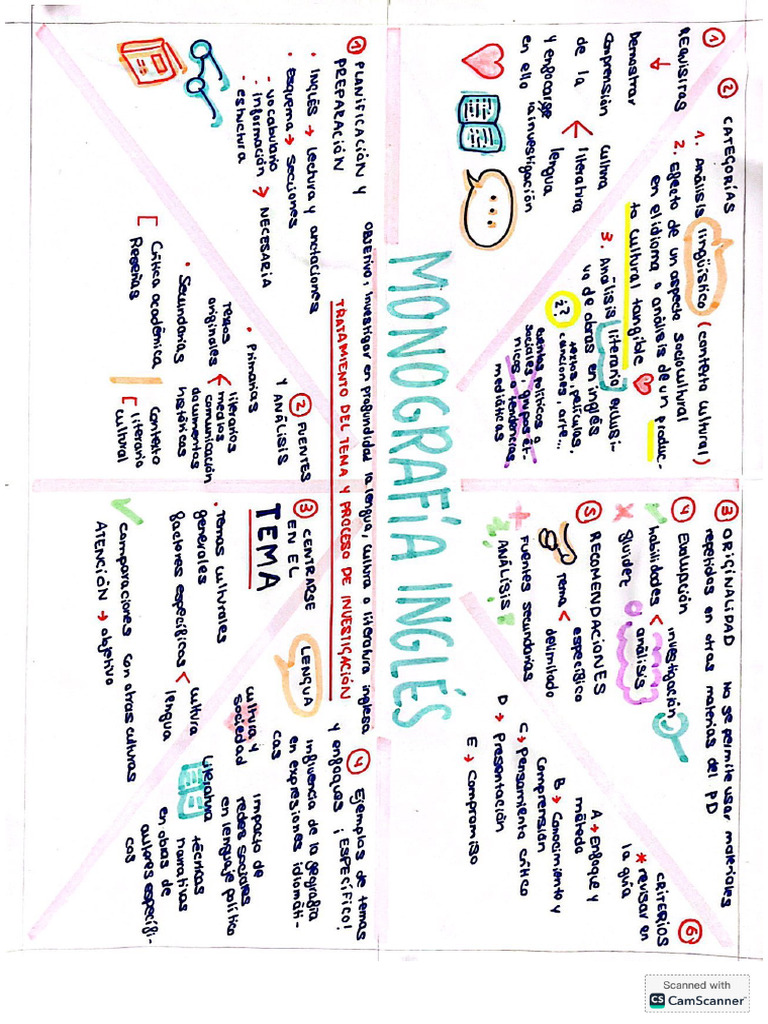 MONOGRAFÍA INGLÉS
OBJETIVO: investigar en profundidad la lengua, cultura o literatura inglesa
TRATAMIENTO DEL TEMA Y PROCESO DE INVESTIGACIÓN
① REQUISITOS
↓
Demostrar
comprensión
de la < cultura
literatura
lengua
y enfocarse
en ello la investigación
② CATEGORÍAS
1. Análisis lingüístico (contexto cultural)
2. Efecto de un aspecto sociocultural
en el idioma o análisis de un produc-
to cultural tangible
3. Análisis literario exclusi-
vo de obras en inglés
¿? textos, películas,
canciones, arte...
eventos políticos o
sociales, grupos ét-
nicos o tendencias
mediáticas
③ ORIGINALIDAD no se permite usar materiales
repetidos en otras materias del PD
④ Evaluación
✓ habilidades < investigación
análisis
✗ fluidez
⑤ RECOMENDACIONES
Tema < específico
delimitado
+ Fuentes secundarias
ANÁLISIS
⑥ CRITERIOS
* revisar en
la guía
A → Enfoque y
método
B → Conocimiento y
comprensión
C → Pensamiento crítico
D → Presentación
E → Compromiso
① PLANIFICACIÓN Y
PREPARACIÓN
• Inglés → Lectura y anotaciones
• Esquema → Secciones
- vocabulario
- información → NECESARIA
- estructura
② FUENTES
Y ANÁLISIS
• Primarias
Textos
originales < literarios
medios
comunicación
documentos
históricos
• Secundarias
[ Crítica académica
Reseñas
[ Contexto
literario
cultural
③ CENTRARSE
EN EL
TEMA
• Temas culturales
generales
✗ factores específicos < cultura
lengua
✓ comparaciones con otras culturas
ATENCIÓN → objetivo
④ Ejemplos de temas
y enfoques ¡ESPECÍFICO!
LENGUA
influencia de la geografía
en expresiones idiomáti-
cas
cultura y
sociedad
impacto de
redes sociales
en lenguaje político
Literatura
técnicas
narrativas
en obras de
autores específi-
cos
Scanned with
CS CamScanner